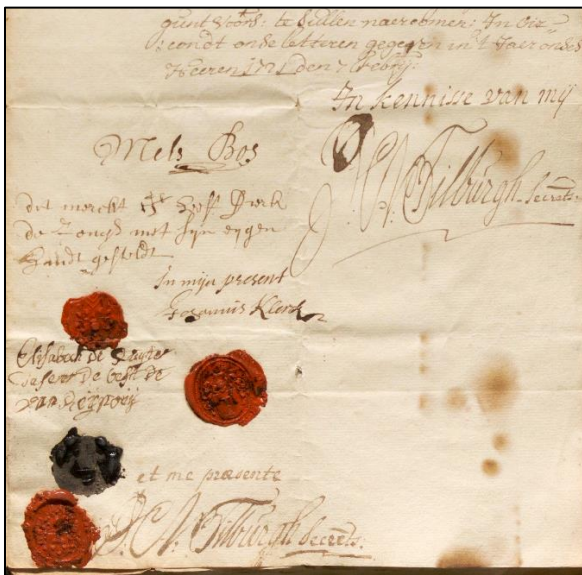 gunt stont: te sullen naerkomen: In oir-
:condt onse letteren gegeven in 't Jaer ondes
Heeren 1721 den 7 febrij:
In kennisse van mij
Mels Bos
J. V. Tilburgh Secrets.
dit merckt heeft Dirk
de Jongh met sijn eygen
handt gestelt
In mijn present
Klerk
Elisabeth de
et me præsente
J. V. Tilburgh Secrets.